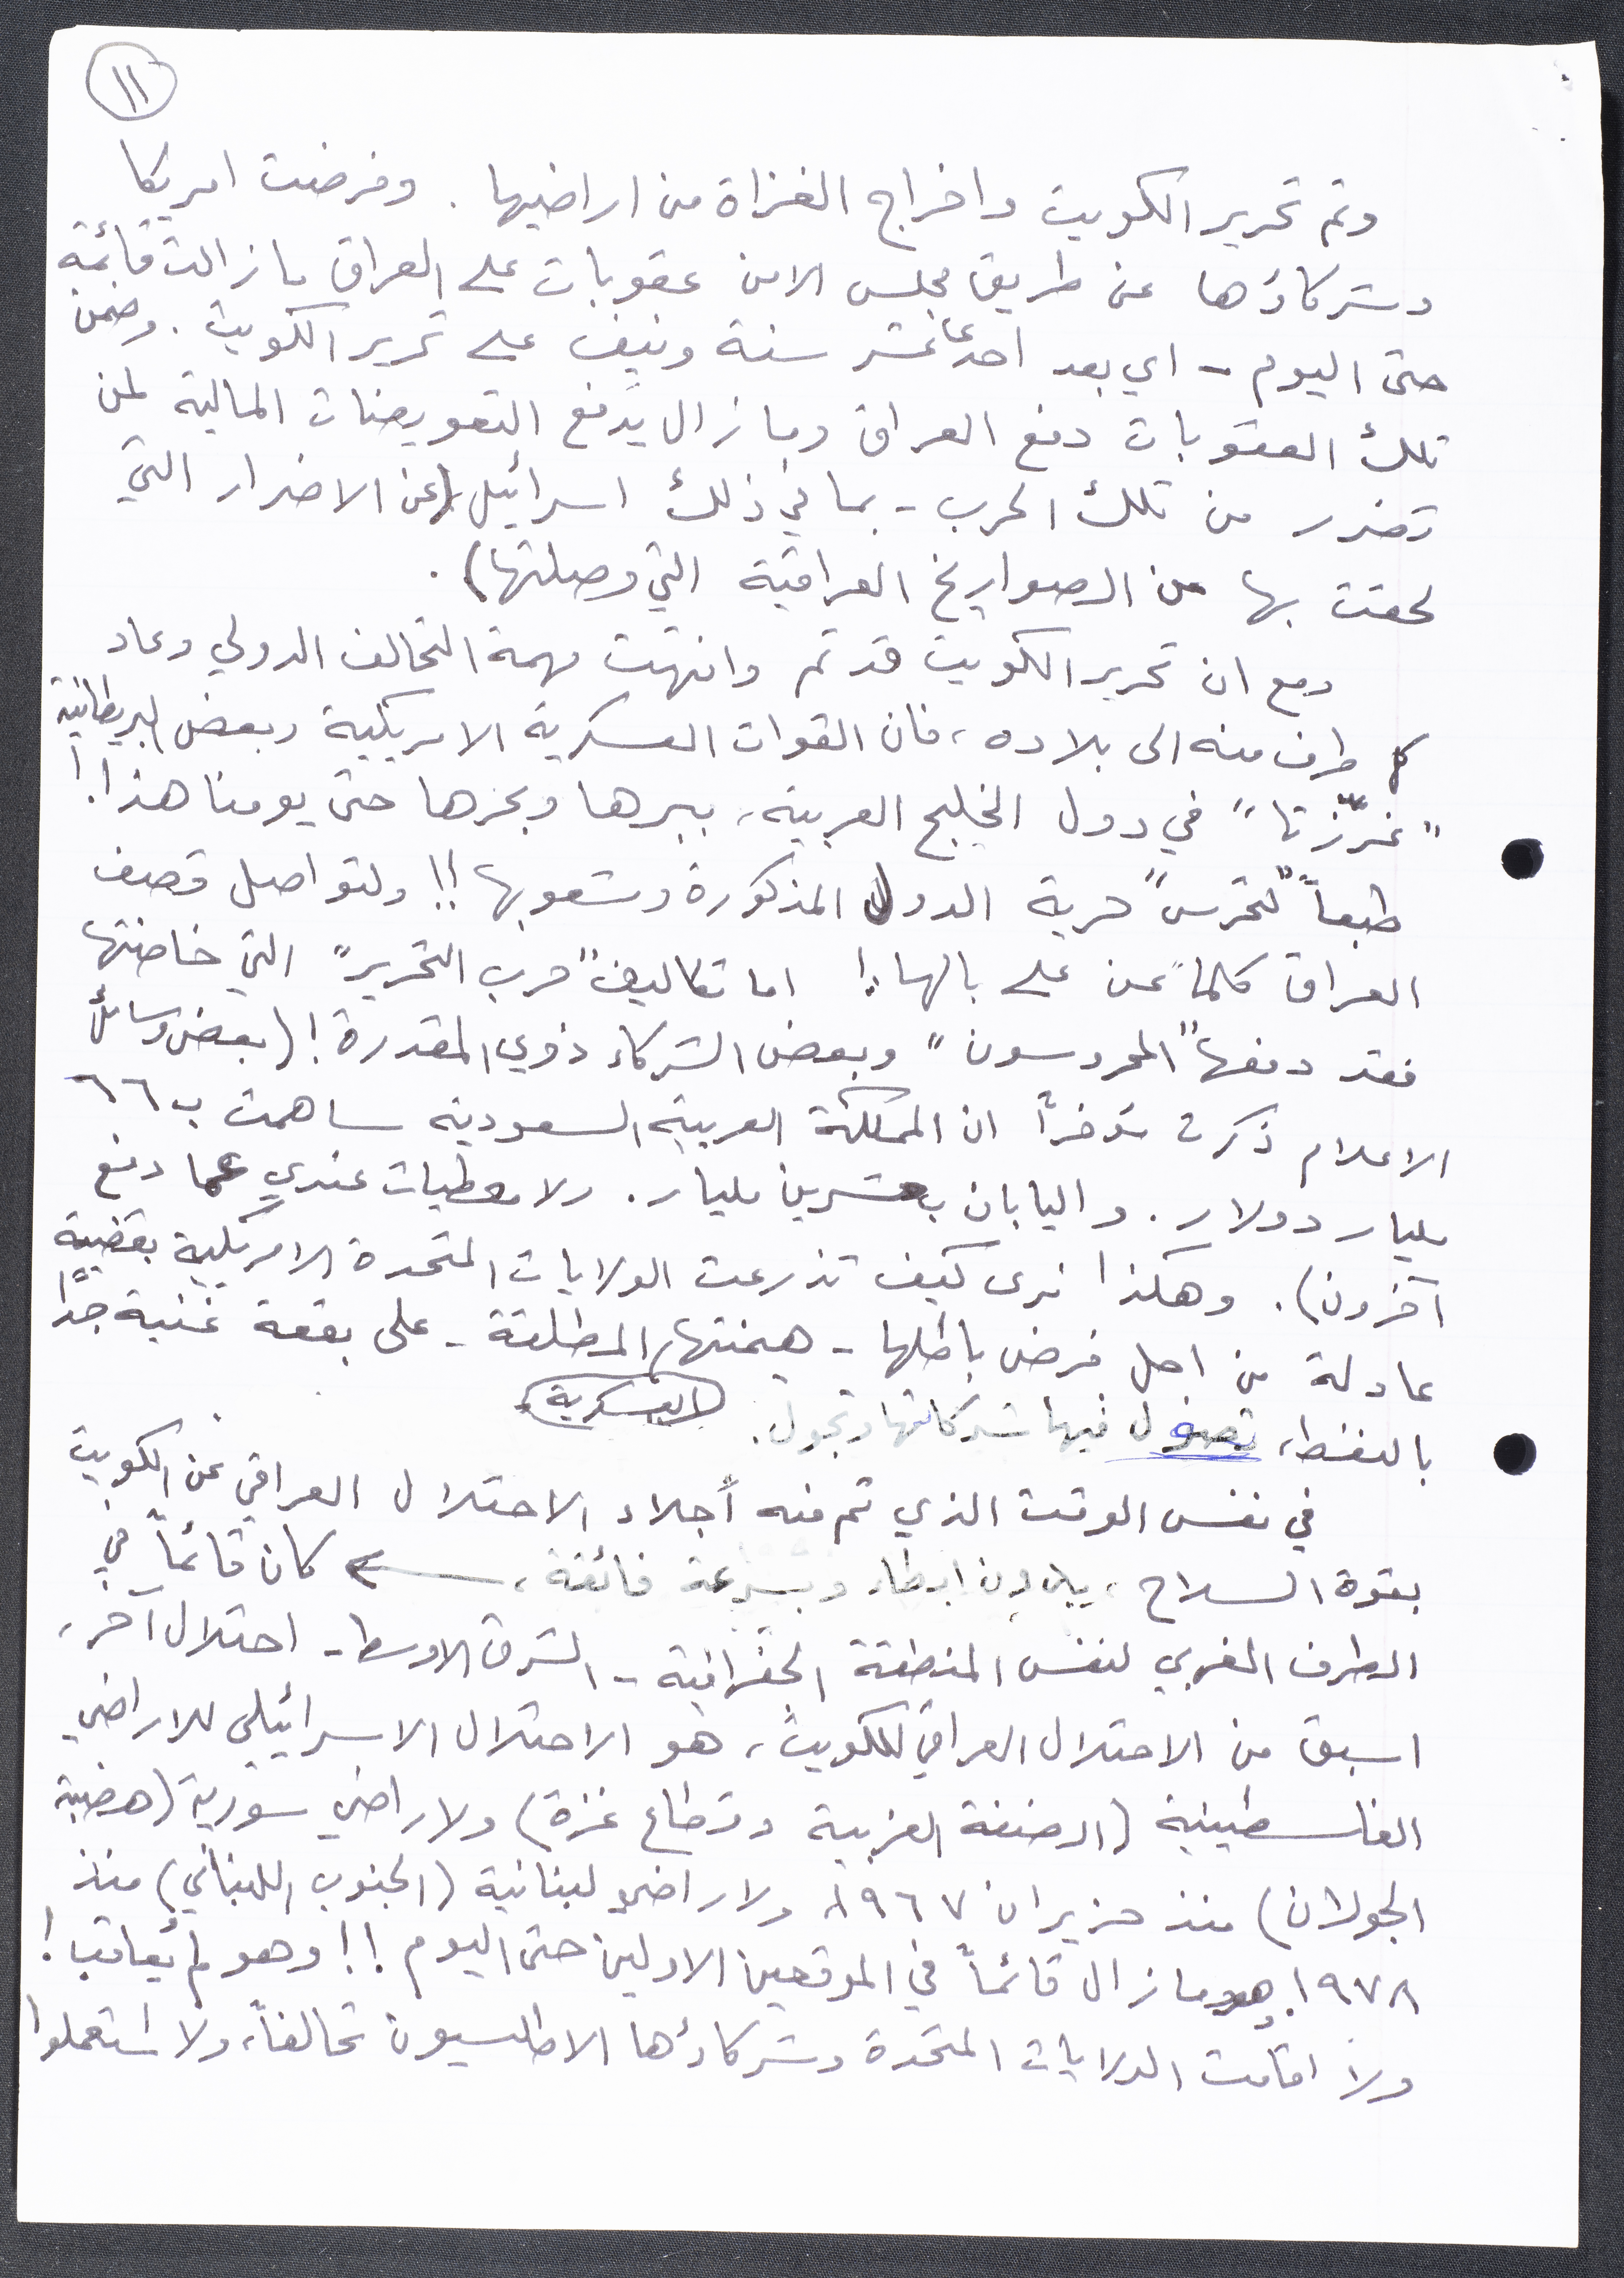 ١١
وتم تحرير الكويت واخراج الغزاة من اراضيها. وفرضت امريكا
وشركاؤها عن طريق مجلس الامن عقوبات على العراق ما زالت قائمة
حتى اليوم - اي بعد احدعاعشر سنة ونيف على تحرير الكويت. وضمن
تلك العقوبات دفع العراق وما زال يدفع التعويضات المالية لمن
تضرر من تلك الحرب - بما في ذلك اسرائيل (عن الاضرار التي
لحقت بها من الصواريخ العراقية التي وصلتها).
ومع ان تحرير الكويت قد تم وانتهت مهمة التحالف الدولي وعاد
كل طرف منه الى بلاده، فان القوات العسكرية الامريكية وبعض البريطانية
"غرّزتا" في دول الخليج العربية، ببرها وبحرها حتى يومنا هذا!
طبعاً "لتحرس" حرية الدول المذكورة وشعوبها!! ولتواصل قصف
العراق كلما عن على بالها! اما تكاليف "حرب التحرير" التي خاضتها
فقد دفعها "المحروسون" وبعض الشركاء ذوي المقدرة! (بعض وسائل
الاعلام ذكرت مؤخراً ان المملكة العربية السعودية ساهمت ب ٦٦
مليار دولار. واليابان بعشرين مليار. ولا معطيات عندي عما دفع
آخرون). وهكذا نرى كيف تذرعت الولايات المتحدة الامريكية بقضية
عادلة من اجل فرض باطلها - هيمنتها المطلقة - على بقعة غنية جداً
العسكرية
بالنفط، تصول فيها شركاتها وتجول.
في نفس الوقت الذي تم فيه أجلاء الاحتلال العراقي عن الكويت
بقوة السلاح، بدون ابطاء وبسرعة فائقة، كان قائماً في
الطرف الغربي لنفس المنطقة الجغرافية - الشرق الاوسط - احتلال آخر،
اسبق من الاحتلال العراقي للكويت، هو الاحتلال الاسرائيلي للاراضي
الفلسطينية (الضفة الغربية وقطاع غزة) ولاراضي سورية (هضبة
الجولان) منذ حزيران ١٩٦٧، ولاراضي لبنانية (الجنوب اللبناني) منذ
١٩٧٨. وهو ما زال قائماً في الموقعين الاولين حتى اليوم!! وهو لم يُعاقب!
ولا اقامت الولايات المتحدة وشركاؤها الاطلسيون تحالفاً، ولا استعملوا